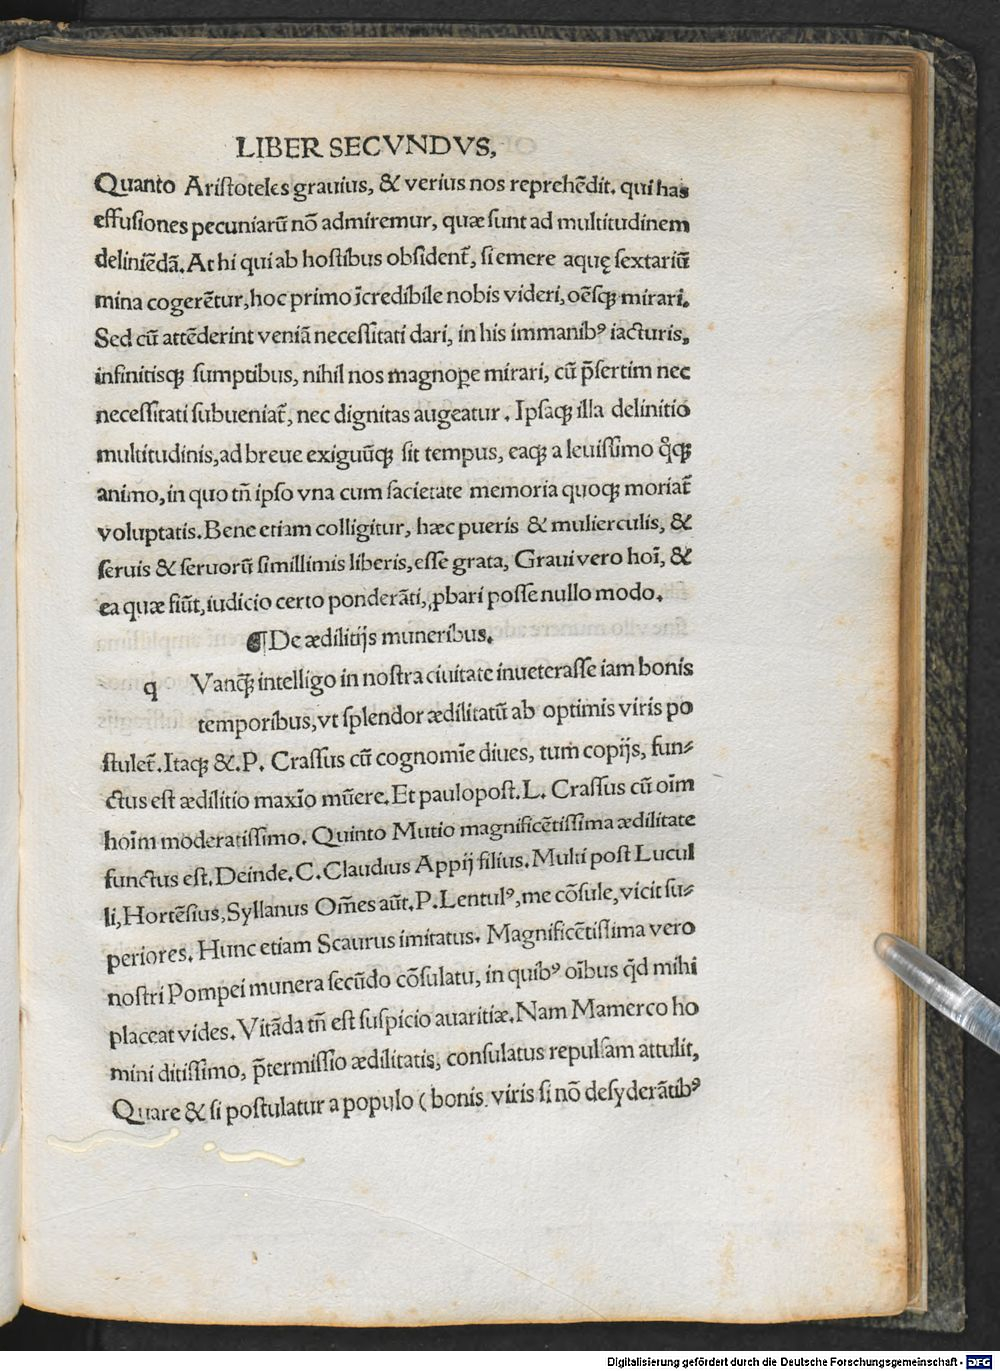 LIBER SECVNDVS,
Quanto Aristoteles grauius, & verius nos reprehēdit. qui has
effusiones pecuniarū nō admiremur, quæ sunt ad multitudinem
deliniēdā. At hi qui ab hostibus obsident᷑, si emere aquę sextariū
mina cogerētur, hoc primo īcredibile nobis videri, oēsqꝫ mirari.
Sed cū attēderint veniā necessitati dari, in his immanibꝰ iacturis,
infinitisqꝫ sumptibus, nihil nos magnope mirari, cū p̄sertim nec
necessitati subueniat᷑, nec dignitas augeatur. Ipsaqꝫ illa delinitio
multitudinis, ad breue exiguūqꝫ sit tempus, eaqꝫ a leuissimo q̊qꝫ
animo, in quo tn̄ ipso vna cum sacietate memoria quoqꝫ moriat᷑
voluptatis. Bene etiam colligitur, hæc pueris & mulierculis, &
seruis & seruorū simillimis liberis, esse grata, Graui vero hoī, &
ea quæ fiūt, iudicio certo ponderāti, ꝓbari posse nullo modo.
¶ De ædilitijs muneribus.
q Vanqꝫ intelligo in nostra ciuitate inueterasse iam bonis
temporibus, vt splendor ædilitatū ab optimis viris po
stulet᷑. Itaqꝫ &. P. Crassus cū cognomīe diues, tum copijs, fun⸗
ctus est ædilitio maxīo mūere. Et paulopost. L. Crassus cū oīm
hoīm moderatissimo. Quinto Mutio magnificētissima ædilitate
functus est. Deinde. C. Claudius Appij filius. Multi post Lucul
li, Hortēsius, Syllanus Om̄es aūt. P. Lentulꝰ, me cōsule, vicit su⸗
periores. Hunc etiam Scaurus imitatus. Magnificētissima vero
nostri Pompei munera secūdo cōsulatu, in quibꝰ oībus qd̄ mihi
placeat vides. Vitāda tn̄ est suspicio auaritiæ. Nam Mamerco ho
mini ditissimo, p̄termissio ædilitatis, consulatus repulsam attulit,
Quare & si postulatur a populo ( bonis. viris si nō desyderātibꝰ
Digitalisierung gefördert durch die Deutsche Forschungsgemeinschaft - DFG